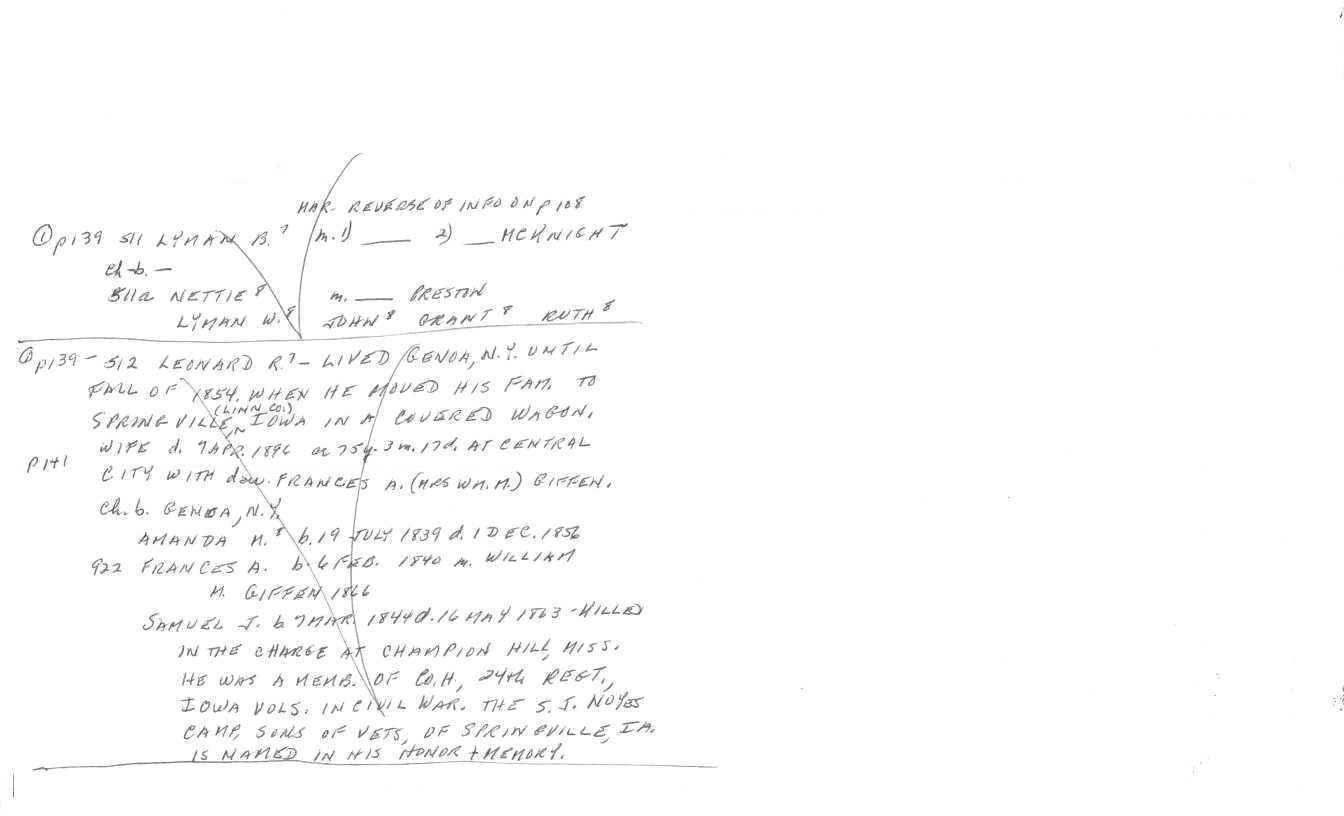 MAR. REVERSE OF INFO ON p 108
① p139 511 LYMAN B.⁷ m. 1) ____ 2) ___ MCKNIGHT
ch-b. —
511a NETTIE⁸ m. ____ PRESTON
LYMAN W.⁸ JOHN⁸ GRANT⁸ RUTH⁸
① p139 - 512 LEONARD R.⁷ - LIVED GENOA, N.Y. UNTIL
FALL OF 1854, WHEN HE MOVED HIS FAM. TO
(LINN CO.)
SPRINGVILLE, IOWA IN A COVERED WAGON.
IN
WIFE d. 9 APR. 1896 ae 75y. 3m. 17d. AT CENTRAL
p 141
CITY WITH dau. FRANCES A. (MRS WM. M.) GIFFEN.
Ch. b. GENOA, N.Y.
AMANDA M.⁸ b. 19 JULY 1839 d. 1 DEC. 1856
922 FRANCES A. b. 6 FEB. 1840 m. WILLIAM
M. GIFFEN 1866
SAMUEL J. b 7 MAR. 1844 d. 16 MAY 1863 - KILLED
IN THE CHARGE AT CHAMPION HILL, MISS.
HE WAS A MEMB. OF CO. H, 24th REGT.,
IOWA VOLS. IN CIVIL WAR. THE S. J. NOYES
CAMP, SONS OF VETS, OF SPRINGVILLE, IA.
IS NAMED IN HIS HONOR + MEMORY.